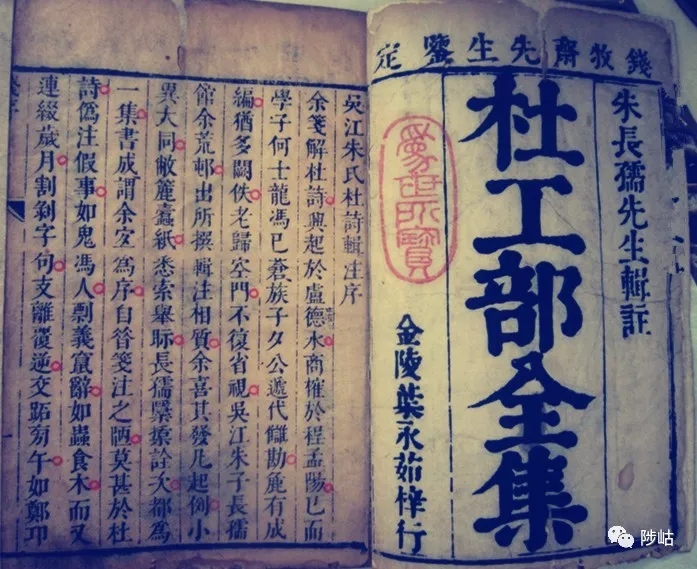 錢牧齋先生鑒定
朱長孺先生輯註
杜工部全集
萬世所寶
金陵葉永茹梓行
吳江朱氏杜詩輯注序
余箋解杜詩興起於盧德水商榷於程孟陽已而
學子何士龍馮已蒼族子夕公遞代讎勘麄有成
編猶多闕佚老歸空門不復省視吳江朱子長孺
館余荒邨出所撰輯注相質余喜其發凡起例小
異大同敝麓蠹紙悉索舉眎長孺詮次都為
一集書成謂余宜為序自昔箋注之陋莫甚於杜
詩偽注假事如鬼馮人剽義竄辭如蟲食木而又
連綴歲月割剝字句支離覆逆交跖旁午如鄭卬
陟岵